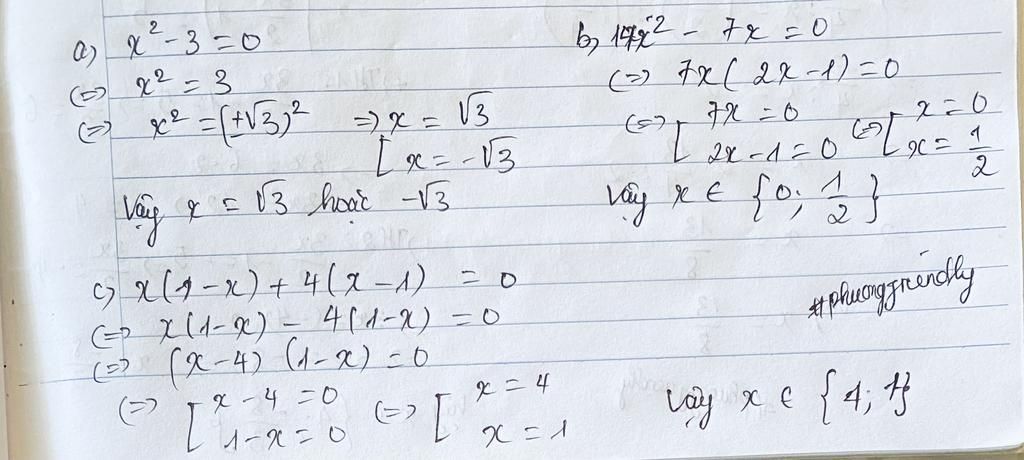 a) x² - 3 = 0
(=) x² = 3
(=) x² = (±√3)² => x = √3
[ x = -√3
Vậy x = √3 hoặc -√3
b, 14x² - 7x = 0
(=) 7x( 2x - 1) = 0
(=) [ 7x = 0 (=) [ x = 0
2x - 1 = 0 x = 1/2
Vậy x ∈ {0; 1/2}
c) x(1 - x) + 4(x - 1) = 0
(=) x(1-x) - 4(1-x) = 0
(=) (x-4) (1-x) = 0
(=) [ x - 4 = 0 (=) [ x = 4
1 - x = 0 x = 1
Vậy x ∈ {4; 1}
#phuongfriendly